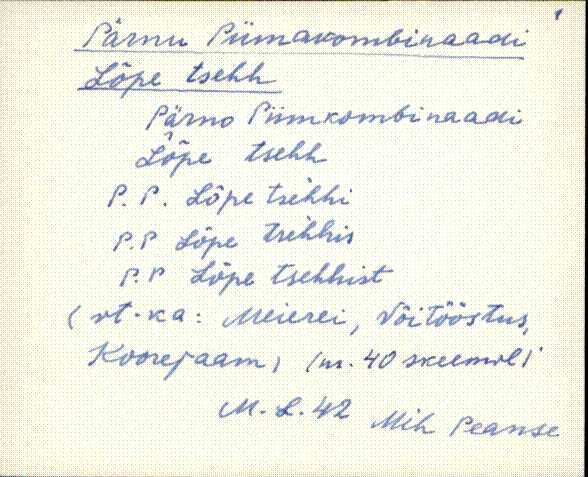 Pärnu Piimakombinaadi
Lõpe tsehh
Pärno Piimkombinaadi
Lõ̀pe tsehh
P. P. Lõpe tsèhhi
P.P Lõpe tsèhhis
P.P Lõpe tsehhist
(vt. ka: Meierei, Võitööstus,
Koorejaam) (nr. 40 skeemil)
M. L. 42 Mih Peanse